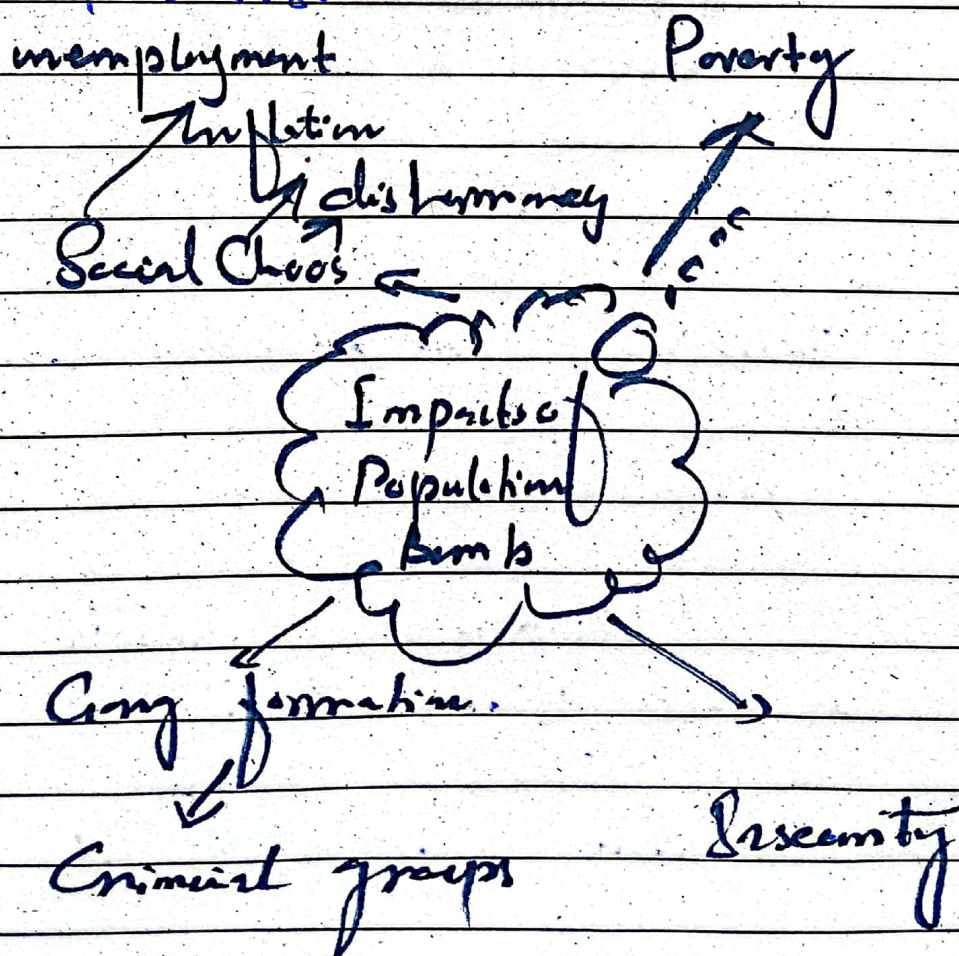 unemployment
Poverty
Inflation
disharmoney
Social Choos
Impacts of
Population
Bomb
Gang formation.
Crimcial groups
Insecurity